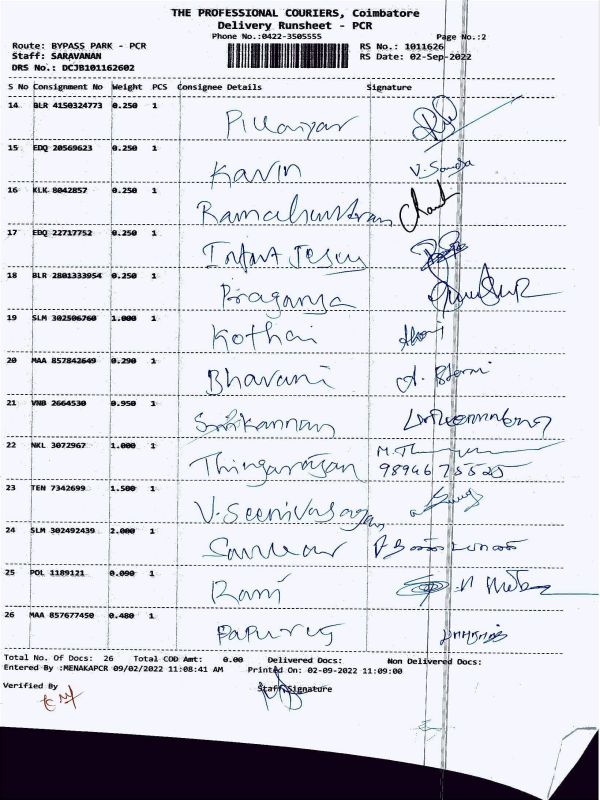 THE PROFESSIONAL COURIERS, Coimbatore
Delivery Runsheet - PCR
Phone No.:0422-3505555 Page No.:2
Route: BYPASS PARK - PCR RS No.: 1011626
Staff: SARAVANAN RS Date: 02-Sep-2022
DRS No.: DCJB101162602
S No Consignment No Weight PCS Consignee Details Signature
14 BLR 4150324773 0.250 1
Pillaiyar
15 EDQ 20569623 0.250 1
Kavin
16 KLK 8042857 0.250 1
17 EDQ 22717752 0.250 1
Infant Jesus
18 BLR 2801333954 0.250 1
Praganya
19 SLM 302506760 1.000 1
Kothai
20 MAA 857842649 0.290 1
Bhavani
21 VNB 2664530 0.950 1
22 NKL 3072967 1.000 1
Thingarajan 98946 75525
23 TEN 7342699 1.500 1
V. Seenivasagan
24 SLM 302492439 2.000 1
25 POL 1189121 0.090 1
Rani
26 MAA 857677450 0.480 1
Total No. Of Docs: 26 Total COD Amt: 0.00 Delivered Docs: Non Delivered Docs:
Entered By :MENAKAPCR 09/02/2022 11:08:41 AM Printed On: 02-09-2022 11:09:00
Verified By Staff Signature